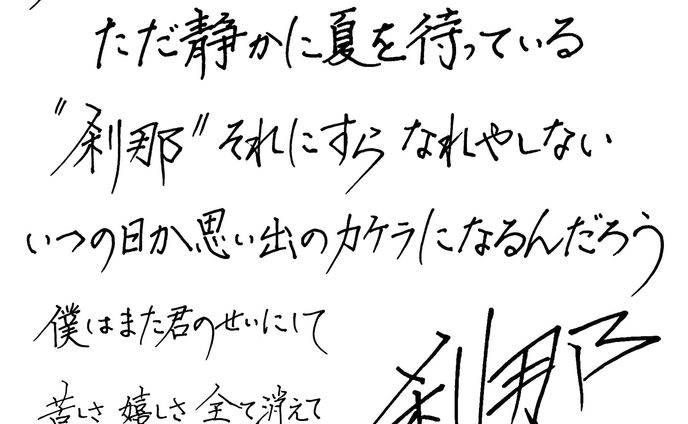 ただ静かに夏を待っている
"刹那"それにすらなれやしない
いつの日か思い出のカケラになるんだろう
僕はまた君のせいにして
苦しさ 嬉しさ 全て消えて
刹那